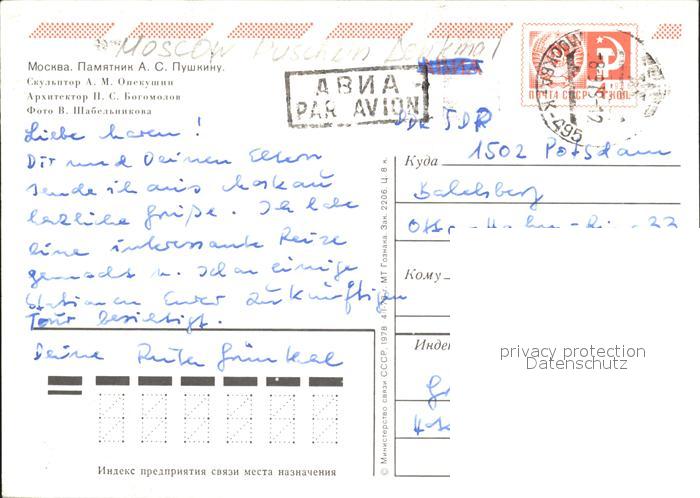 Moscow Puschkin Denkmal
Москва. Памятник А. С. Пушкину.
Скульптор А. М. Опекушин
Архитектор П. С. Богомолов
Фото В. Шабельникова
АВИА
PAR AVION
ПОЧТА СССР 4 коп.
МОСКВА К-495
Liebe Karen!
Dir und Deinen Eltern
sende ich aus Moskau
herzliche Grüße. Ich habe
eine interessante Reise
gemacht u. schon einige
Stationen Eurer zukünftigen
Tour besichtigt.
Deine Ruth Grünkel
DDR
Куда 1502 Potsdam
Babelsberg
Кому
Индекс предприятия связи места назначения
© Министерство связи СССР, 1978 МТ Гознака. Зак. 2206. Ц. 8 к.
privacy protection
Datenschutz